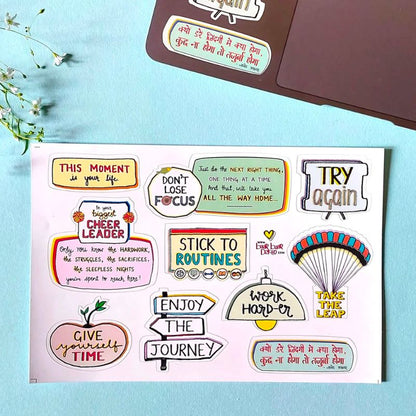 again
क्यों डरें ज़िंदगी में क्या होगा,
कुछ ना होगा तो तजुर्बा होगा
THIS MOMENT
is your life.
DON'T
LOSE
FOCUS
Just do the NEXT RIGHT THING,
ONE THING AT A TIME
And that will take you
ALL THE WAY HOME...
TRY
again
be your
biggest
CHEER
LEADER
Only you know the HARDWORK,
the STRUGGLES, the SACRIFICES,
the SLEEPLESS NIGHTS
you've spent to reach here!
STICK TO
ROUTINES
TAKE
THE
LEAP
GIVE
yourself
TIME
ENJOY
THE
JOURNEY
WORK
HARD-ER
क्यों डरें ज़िंदगी में क्या होगा,
कुछ ना होगा तो तजुर्बा होगा